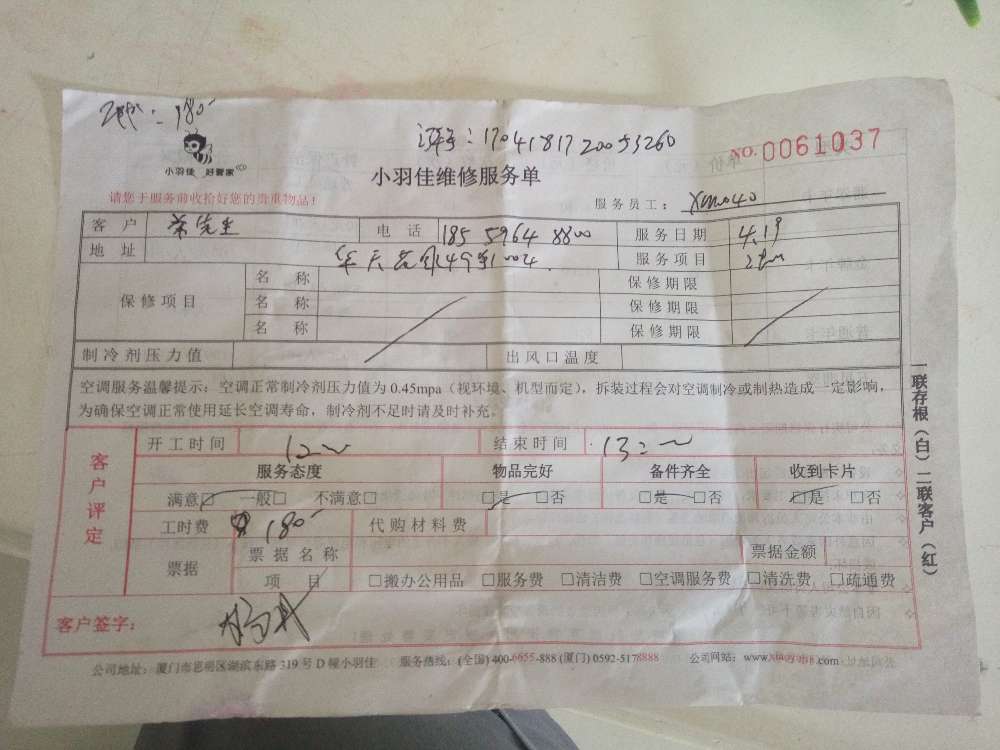 180
订单号：1704181720053260
NO. 0061037
小羽佳 好管家
小羽佳维修服务单
请您于服务前收拾好您的贵重物品！
服务员工：
客户 先生 电话 185 5964 8800 服务日期 4.19
地址 服务项目
名称 保修期限
保修项目 名称 保修期限
名称 保修期限
制冷剂压力值 出风口温度
空调服务温馨提示：空调正常制冷剂压力值为 0.45mpa（视环境、机型而定），拆装过程会对空调制冷或制热造成一定影响，
为确保空调正常使用延长空调寿命，制冷剂不足时请及时补充。
客户评定
开工时间 结束时间
服务态度 物品完好 备件齐全 收到卡片
满意□ 一般□ 不满意□ □是 □否 □是 □否 □是 □否
工时费 180 代购材料费
票据 票据名称 票据金额
项目 □搬办公用品 □服务费 □清洁费 □空调服务费 □清洗费 □疏通费
客户签字：
公司地址：厦门市思明区湖滨东路 319 号 D 幢小羽佳 服务热线：(全国) 400-6655-888 (厦门) 0592-5178888 公司网站：
一联存根（白）二联客户（红）